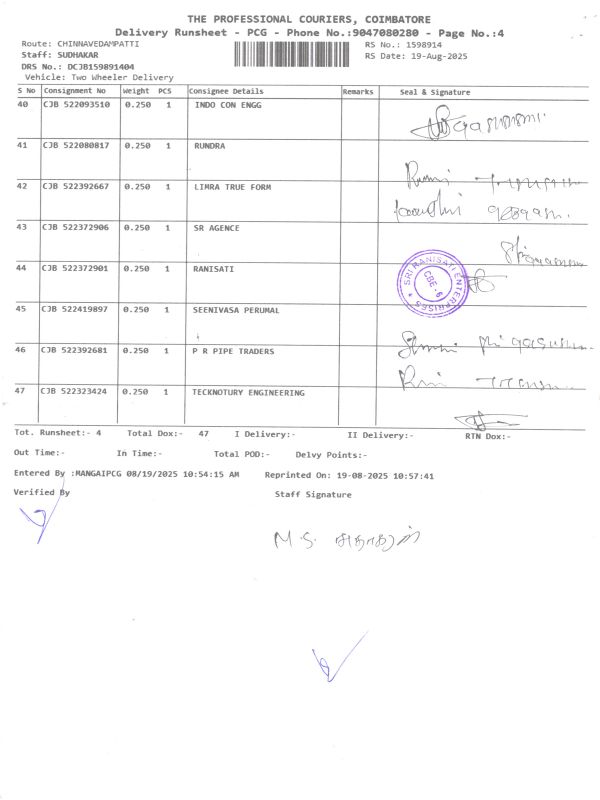 THE PROFESSIONAL COURIERS, COIMBATORE
Delivery Runsheet - PCG - Phone No.:9047080280 - Page No.:4
Route: CHINNAVEDAMPATTI RS No.: 1598914
Staff: SUDHAKAR RS Date: 19-Aug-2025
DRS No.: DCJB159891404
Vehicle: Two Wheeler Delivery
S No Consignment No Weight PCS Consignee Details Remarks Seal & Signature
40 CJB 522093510 0.250 1 INDO CON ENGG
41 CJB 522080817 0.250 1 RUNDRA
42 CJB 522392667 0.250 1 LIMRA TRUE FORM
43 CJB 522372906 0.250 1 SR AGENCE
44 CJB 522372901 0.250 1 RANISATI
SRI RANISATI ENTERPRISES
CBE-6
45 CJB 522419897 0.250 1 SEENIVASA PERUMAL
46 CJB 522392681 0.250 1 P R PIPE TRADERS
47 CJB 522323424 0.250 1 TECKNOTURY ENGINEERING
Tot. Runsheet:- 4 Total Dox:- 47 I Delivery:- II Delivery:- RTN Dox:-
Out Time:- In Time:- Total POD:- Delvy Points:-
Entered By :MANGAIPCG 08/19/2025 10:54:15 AM Reprinted On: 19-08-2025 10:57:41
Verified By Staff Signature
M.S. சுதாகரன்